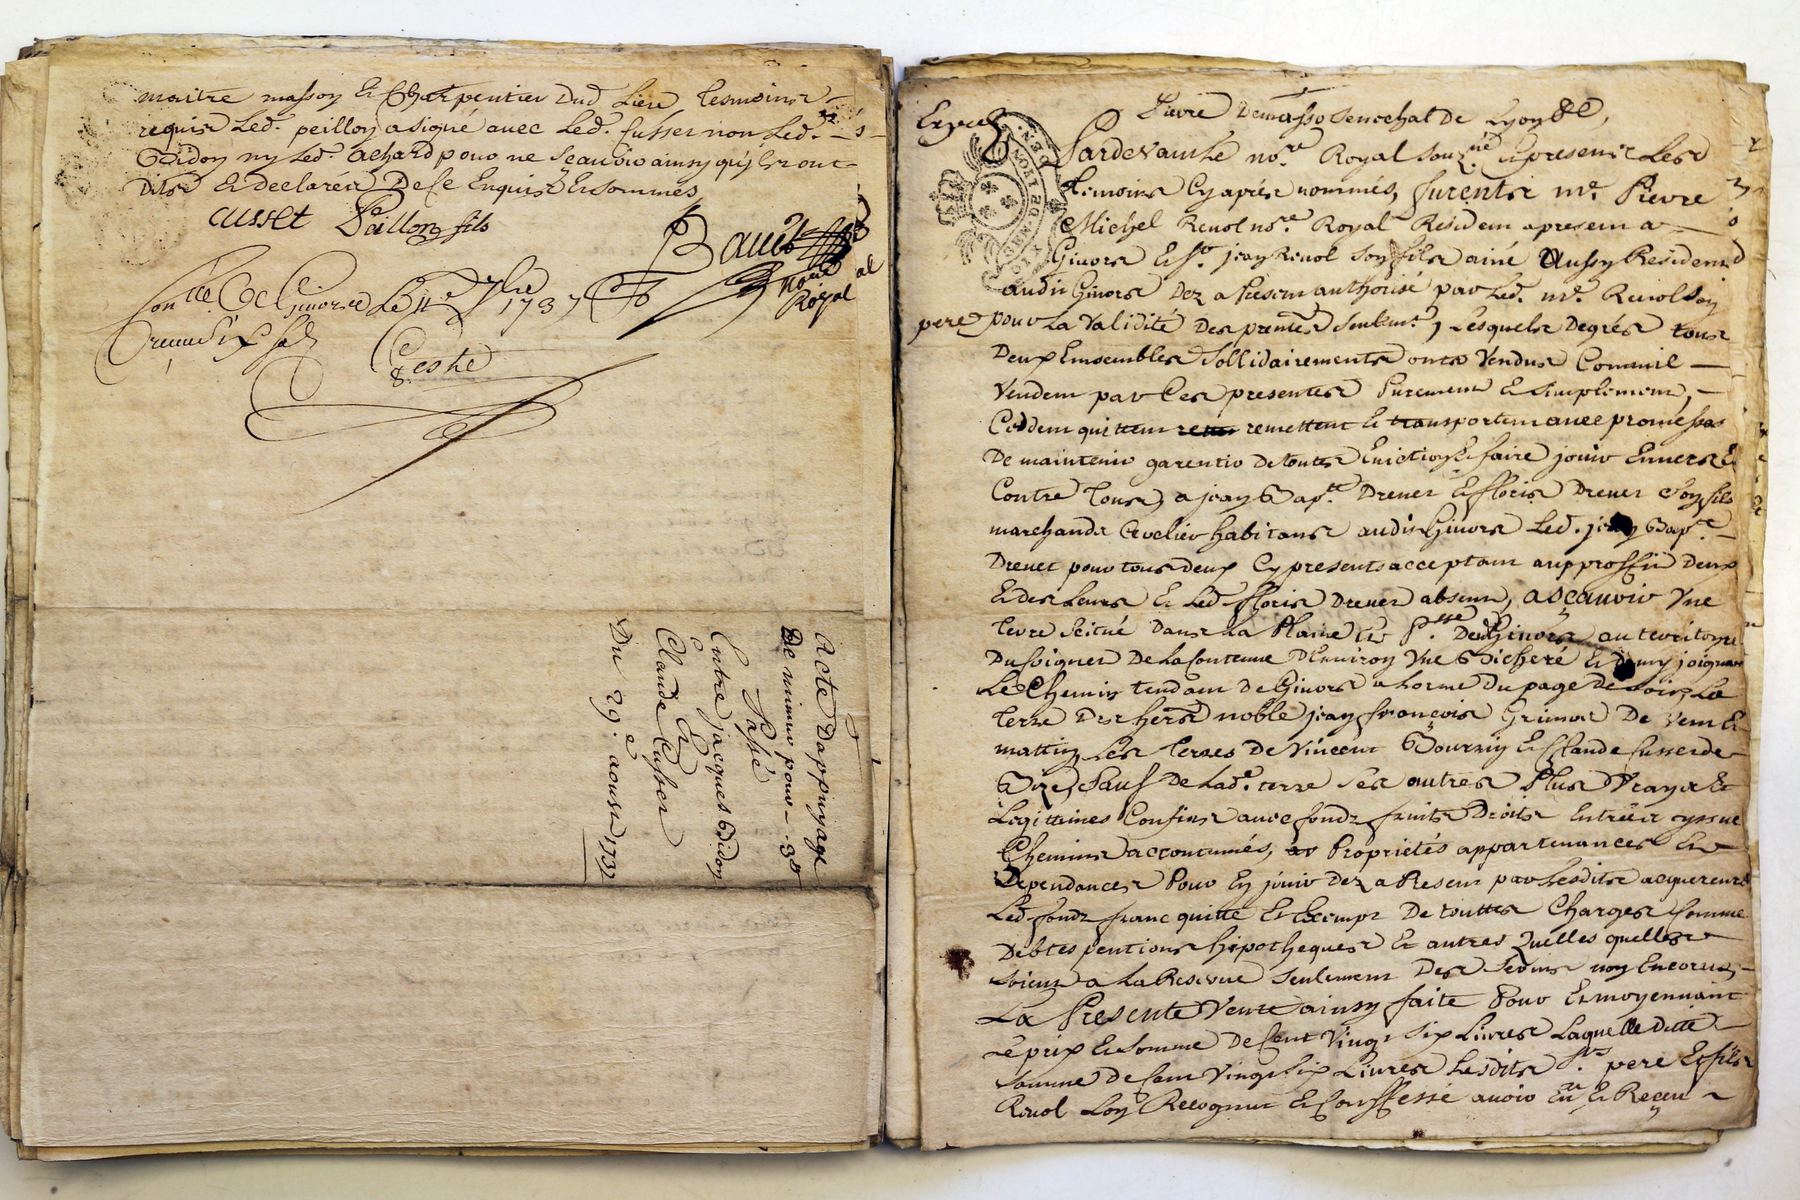 maitre masson Et Charpentier Dud Liere tesmoins
requis Led. peillon a signé avec Led. Cusset non Led.
Bidon ny Led. Achard pour ne Scauoir ainsy qu'ils ont
dits Et declarés De Ce Enquis Et sommés
Cusset Paillon fils
Bauet
nore
Royal
Conlle a Givors Le 11e 7bre 1737
Receu dix sols
Coste
Acte Dappuyage
De mineur pour 3#
Passé
Entre jacques Bidon
Et
Claude Cusset
Du 29.e aoust 1737
Exped
GEN DE LYON
Pierre Demasso Senechal de Lyon
Pardevant Le nore. Royal Souz.né Et presents Les
temoins Cy aprés nommés, furents me. Pierre
Michel Revol nore. Royal Resident a present a
Givors Et Sr. jean Revol Son fils ainé Aussy Resident
audit Givors Dez a Present authorisé par Led. me. Revol Son
pere pour La Validité Des presentes Seulemt, Lesquels Degrés tous
Deux Ensembles Sollidairements onts Vendus Comme il
Vendent par Ces presentes Purement Et Simplement,
Ceddent quittent remettent Et transportent avec promesses
De maintenir garentir De toutes Euiction Et faire jouir Enuers Et
Contre tous, a jean Bapt. Dreuet Et ffloris Dreuet Son fils
marchands habitans audit Givors Led. jean Bapt.
Dreuet pour tous deux Cy presents acceptant au proffit Deux
Et des Leurs Et Led. ffloris Dreuet absent, a Scauoir Vne
terre Scitué Dans La Plaine Et P.sse Dud Givors au territoyre
Du Soigner De La fontenne D'Enuiron Vne Bicheré Et demy joignant
Le Chemin tendant de Givors a horme Du page De Soir, La
terre Des hers noble jean françois Grimod De Vent Et
mattin, Les terres De Vincent Bournin Et Claude Cusset de
Bize, Sauf De Lad. terre Ses autres Plus Vrays Et
Legittimes Confins avec fondz fruits Droits Entrées yssue
Chemins accoutumés, Propriétés appartenances Et
Dependances Pour En jouir Dez a Present par Lesdits acquereurs
Led. fondz franc quitte Et Exempt De touttes Charges Comme
Debtes pentions hipotheques Et autres quelles quelles
Soient a La Reserve Seulement Des Seruis non Encorus,
La Presente Vente ainsy faite Pour Et moyennant
Le prix Et Somme De Cent Vingt Six Livres Laquelle ditte
Somme De Cent Vingt Six Livres Lesdits Srs. pere Et fils
Revol Lon Recognut Et Conffessé avoir Eu Et Receu